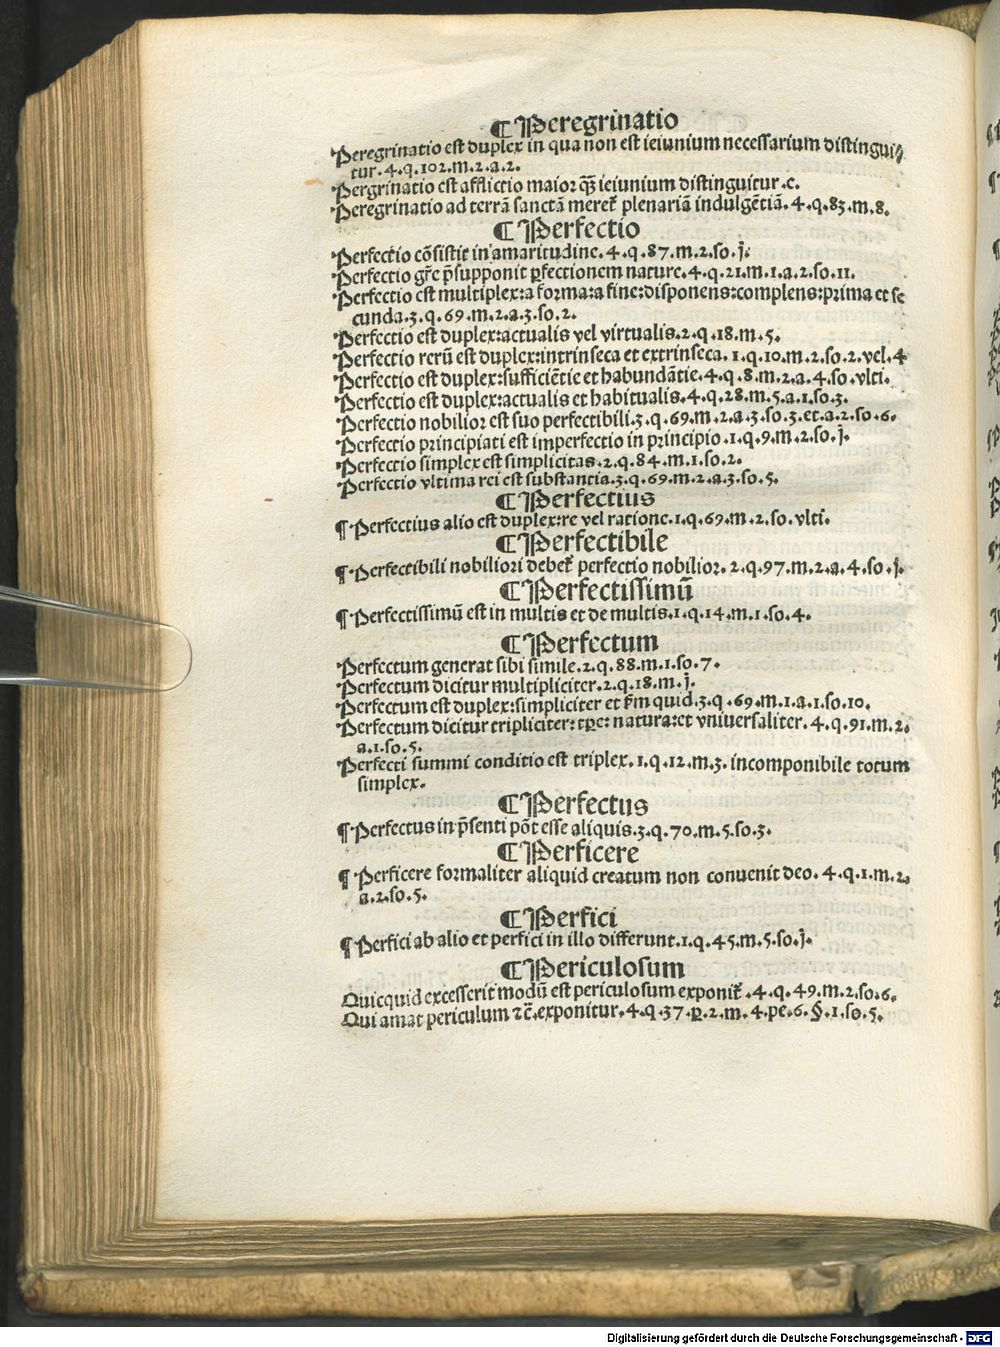 ¶ Peregrinatio
Peregrinatio est duplex in qua non est ieiunium necessarium distingui⸗
tur.4.q.102.m.2.a.2.
Pergrinatio est afflictio maior qȝ̄ ieiunium distinguitur.c.
Peregrinatio ad terrā sanctā meret᷑ plenariā indulgētiā.4.q.83.m.8.
¶ Perfectio
Perfectio cōsistit in amaritudine.4.q.87.m.2.so.j.
Perfectio gr̄e p̄supponit ꝑfectionem nature.4.q.21.m.1.a.2.so.11.
Perfectio est multiplex:a forma:a fine:disponens:complens:prima et se
cunda.3.q.69.m.2.a.3.so.2.
Perfectio est duplex:actualis vel virtualis.2.q.18.m.5.
Perfectio rerū est duplex:intrinseca et extrinseca.1.q.10.m.2.so.2.vel.4
Perfectio est duplex:sufficiētie et habundātie.4.q.8.m.2.a.4.so.vlti.
Perfectio est duplex:actualis et habitualis.4.q.28.m.5.a.1.so.3.
Perfectio nobilior est suo perfectibili.3.q.69.m.2.a.3.so.3.et.a.2.so.6.
Perfectio principiati est imperfectio in principio.1.q.9.m.2.so.j.
Perfectio simplex est simplicitas.2.q.84.m.1.so.2.
Perfectio vltima rei est substantia.3.q.69.m.2.a.3.so.5.
¶ Perfectius
¶ Perfectius alio est duplex:re vel ratione.1.q.69.m.2.so.vlti.
¶ Perfectibile
¶ Perfectibili nobiliori debet᷑ perfectio nobilior.2.q.97.m.2.a.4.so.j.
¶ Perfectissimū
¶ Perfectissimū est in multis et de multis.1.q.14.m.1.so.4.
¶ Perfectum
Perfectum generat sibi simile.2.q.88.m.1.so.7.
Perfectum dicitur multipliciter.2.q.18.m.j.
Perfectum est duplex:simpliciter et ẜm quid.3.q.69.m.1.a.1.so.10.
Perfectum dicitur tripliciter:tꝑe:natura:et vniuersaliter.4.q.91.m.2.
a.1.so.5.
Perfecti summi conditio est triplex.1.q.12.m.3.incomponibile totum
simplex.
¶ Perfectus
¶ Perfectus in p̄senti pōt esse aliquis.3.q.70.m.5.so.3.
¶ Perficere
¶ Perficere formaliter aliquid creatum non conuenit deo.4.q.1.m.2.
a.2.so.5.
¶ Perfici
¶ Perfici ab alio et perfici in illo differunt.1.q.45.m.5.so.j.
¶ Periculosum
Quicquid excesserit modū est periculosum exponit᷑.4.q.49.m.2.so.6.
Qui amat periculum ⁊c̄.exponitur.4.q.37.ꝑ.2.m.4.pe.6.§.1.so.5.
Digitalisierung gefördert durch die Deutsche Forschungsgemeinschaft - DFG